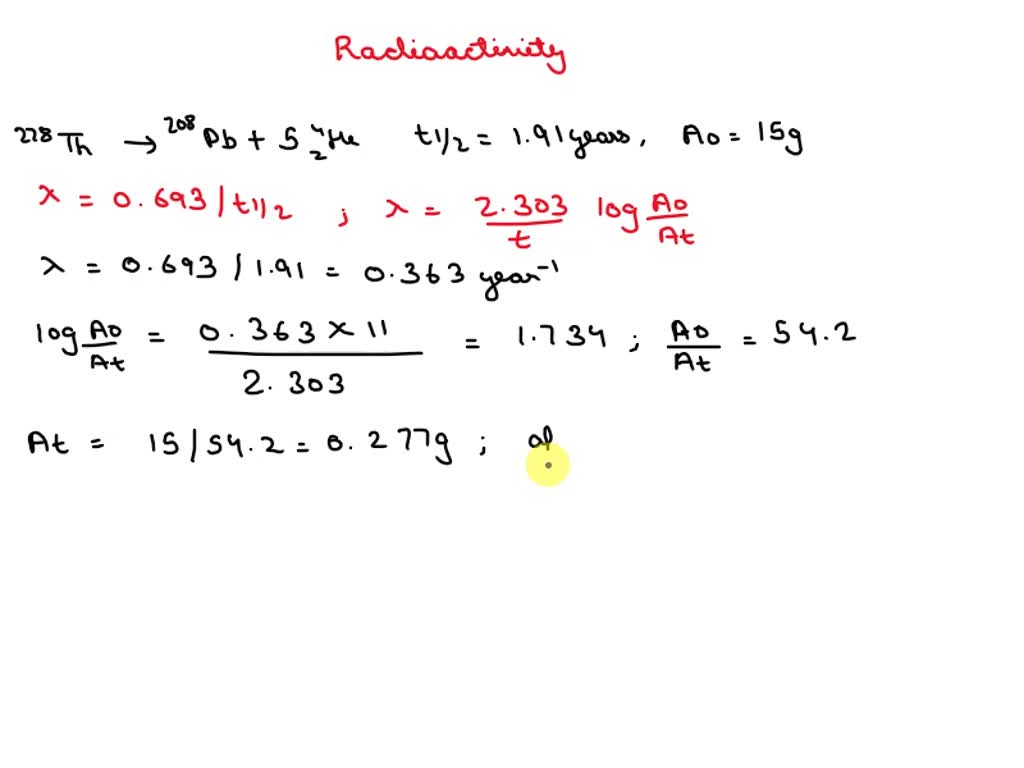 Radioactivity
228Th → 208Pb + 5 4 2 He t1/2 = 1.91 years, Ao = 15g
λ = 0.693 / t1/2 ; λ = 2.303 / t log Ao / At
λ = 0.693 / 1.91 = 0.363 year-1
log Ao / At = 0.363 × 11 / 2.303 = 1.734 ; Ao / At = 54.2
At = 15 / 54.2 = 0.277g ;